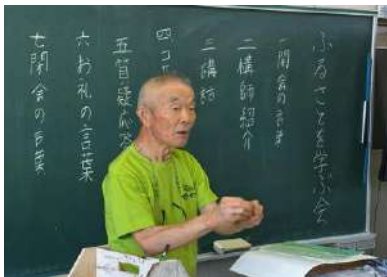 ふるさとを学ぶ会
一開会の言葉
二講師紹介
三講話
四
五質疑応答
六お礼の言葉
七閉会の言葉